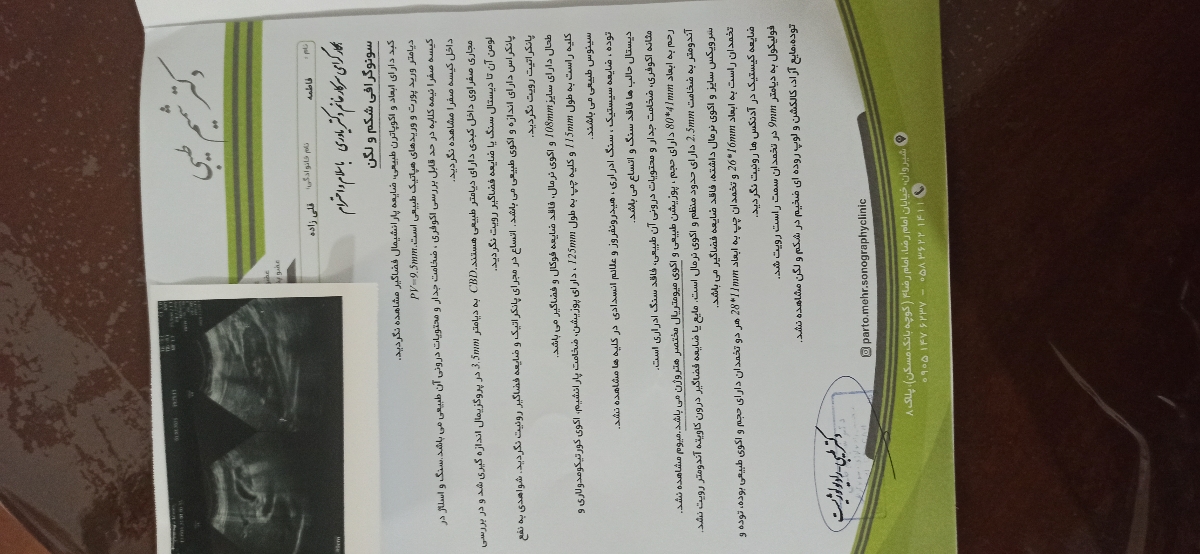 دکتر شمیم طیبی
نام: فاطمه نام خانوادگی: قلی زاده
همکار گرامی سرکار خانم دکتر یاری با سلام و احترام
سونوگرافی شکم و لگن
کبد دارای ابعاد و اکوپاترن طبیعی، ضایعه پارانشیمال فضاگیر مشاهده نگردید.
دیامتر ورید پورت و وریدهای هپاتیک طبیعی است. PV=9.5mm
کیسه صفرا نیمه کلابه در حد قابل بررسی اکوفری، ضخامت جدار و محتویات درونی آن طبیعی می باشد. سنگ و اسلاژ در
داخل کیسه صفرا مشاهده نگردید.
مجاری صفراوی داخل کبدی دارای دیامتر طبیعی هستند. CBD به دیامتر 3.5mm در پروگزیمال اندازه گیری شد و در بررسی
لومن آن تا دیستال سنگ یا ضایعه فضاگیر رویت نگردید.
پانکراس دارای اندازه و اکوی طبیعی می باشد. اتساع در مجرای پانکراتیک و ضایعه فضاگیر رویت نگردید. شواهدی به نفع
پانکراتیت رویت نگردید.
طحال دارای سایز 108mm و اکوی نرمال، فاقد ضایعه فوکال و فضاگیر می باشد.
کلیه راست به طول 115mm و کلیه چپ به طول 125mm، دارای پوزیشن، ضخامت پارانشیم، اکوی کورتیکومدولاری و
سینوس طبیعی می باشند.
توده، ضایعه سیستیک، سنگ ادراری، هیدرونفروز و علائم انسدادی در کلیه ها مشاهده نشد.
دیستال حالب ها فاقد سنگ و اتساع می باشد.
مثانه اکوفری، ضخامت جدار و محتویات درونی آن طبیعی، فاقد سنگ ادراری است.
رحم به ابعاد 80*41mm دارای حجم، پوزیشن طبیعی و اکوی میومتریال مختصر هتروژن می باشد. میوم مشاهده نشد.
آندومتر به ضخامت 2.5mm دارای حدود منظم و اکوی نرمال است. مایع یا ضایعه فضاگیر درون کاویته آندومتر رویت نشد.
سرویکس سایز و اکوی نرمال داشته، فاقد ضایعه فضاگیر می باشد.
تخمدان راست به ابعاد 26*16mm و تخمدان چپ به ابعاد 28*11mm هر دو تخمدان دارای حجم و اکوی طبیعی بوده، توده و
ضایعه کیستیک در آدنکس ها رویت نگردید.
فولیکول به دیامتر 9mm در تخمدان سمت راست رویت شد.
توده، مایع آزاد، کالکشن و لوپ روده ای ضخیم در شکم و لگن مشاهده نشد.
parto.mehr.sonographyclinic
شیروان، خیابان امام رضا، امام رضا ۴ (کوچه بانک مسکن)، پلاک ۸